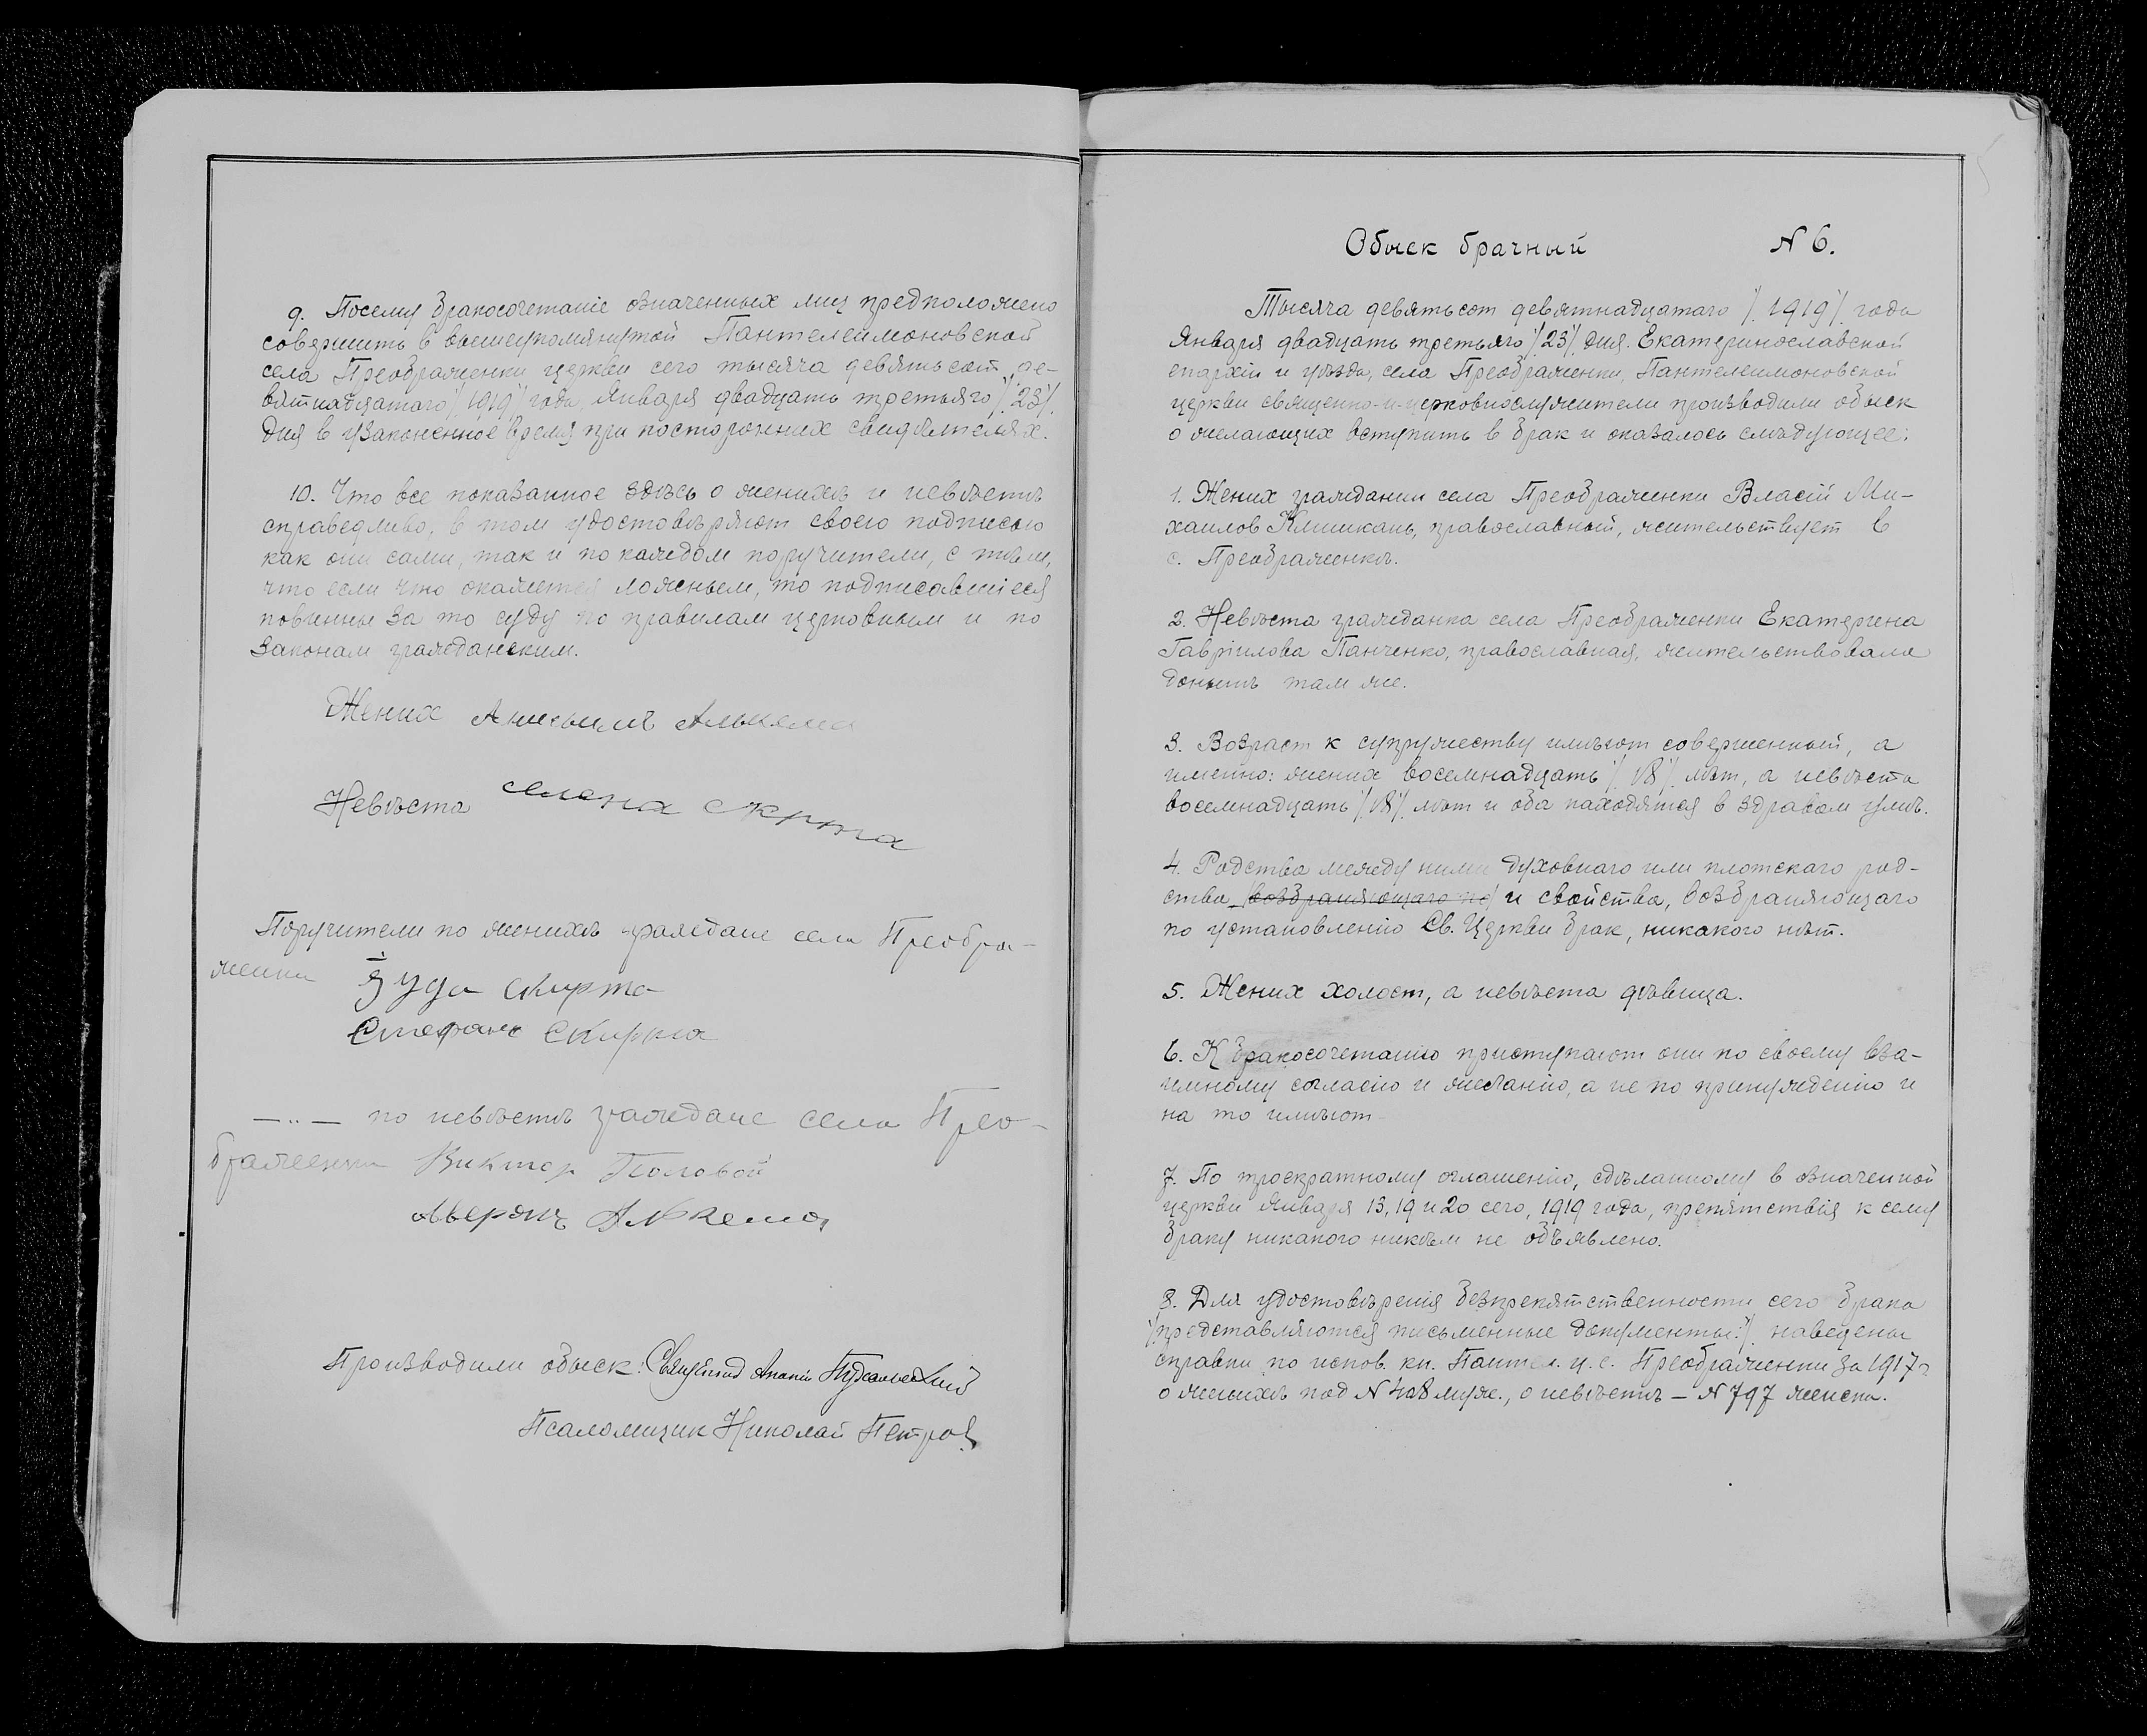 9. Посему бракосочетаніе означенных лиц предположено
совершить в вышеупомянутой Пантелеимоновской
села Преображенки церкви сего тысяча девятьсот де-
вятнадцатаго /1919/ года Января двадцать третьяго /23/
дня в узаконенное время при посторонних свидѣтелях.
10. Что все показанное здѣсь о женихѣ и невѣстѣ
справедливо, в том удостовѣряют своею подписью
как они сами, так и по каждом поручители, с тѣм,
что если что окажется ложным, то подписавшіеся
повинны за то суду по правилам церковным и по
законам гражданским.
Жених
Невѣста Елена Скирта
Поручители по женихѣ граждане села Преобра-
женки Іуда Скирта
Стефанъ Скирта
—„— по невѣстѣ граждане села Прео-
браженки Виктор Половой
Производили обыск: Священник
Псаломщик Николай Петров
Обыск брачный № 6.
Тысяча девятьсот девятнадцатаго /1919/ года
Января двадцать третьяго /23/ дня. Екатеринославской
епархіи и уѣзда, села Преображенки, Пантелеимоновской
церкви священно-и-церковнослужители производили обыск
о желающих вступить в брак и оказалось слѣдующее:
1. Жених гражданин села Преображенки Власій Ми-
хаилов Кишкань, православный, жительствует в
с. Преображенкѣ.
2. Невѣста гражданка села Преображенки Екатерина
Гавріилова Панченко, православная, жительствовала
донынѣ там же.
3. Возраст к супружеству имѣют совершенный, а
именно: жених восемнадцать /18/ лѣт, а невѣста
восемнадцать /18/ лѣт и оба находятся в здравом умѣ.
4. Родства между ними духовнаго или плотскаго род-
ства (возбраняющаго по) и свойства, возбраняющаго
по установленію Св. Церкви брак, никакого нѣт.
5. Жених холост, а невѣста дѣвица.
6. К бракосочетанію приступают они по своему вза-
имному согласію и желанію, а не по принужденію и
на то имѣют –
7. По троекратному оглашенію, сдѣланному в означенной
церкви Января 13, 19 и 20 сего, 1919 года, препятствія к сему
браку никакого никѣм не объявлено.
8. Для удостовѣренія безпрепятственности сего брака
/представляются письменные документы:/ наведены
справки по испов. кн. Пантел. ц. с. Преображенки за 1917 г.
о женихѣ под № 408 муж., о невѣстѣ – № 797 женск.